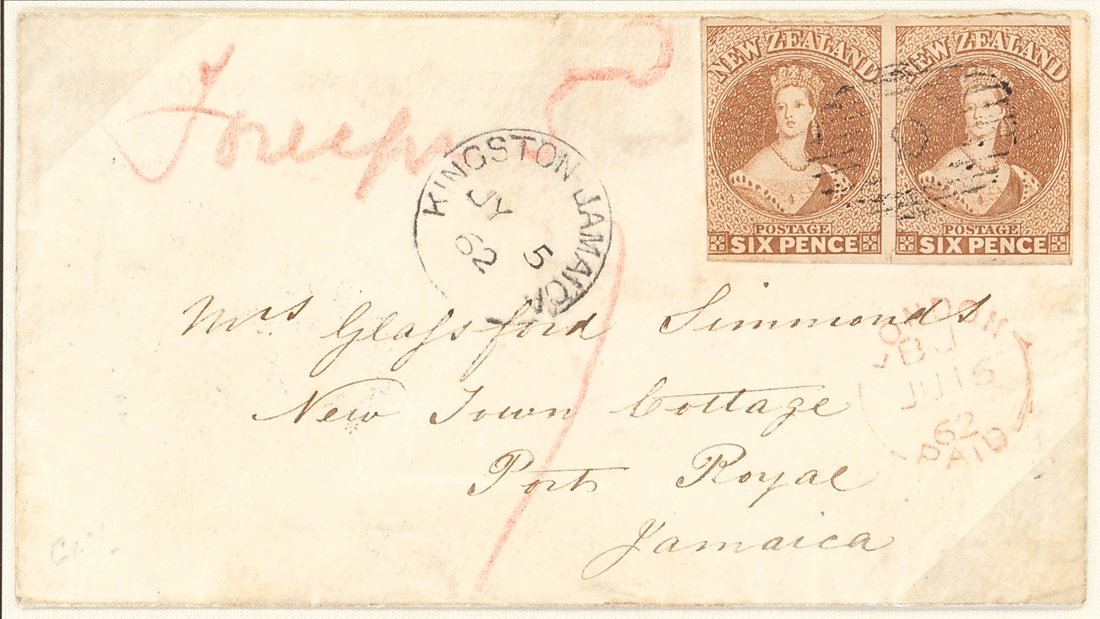 Foreign
NEW ZEALAND
POSTAGE
SIX PENCE
NEW ZEALAND
POSTAGE
SIX PENCE
KINGSTON-JAMAICA
JY
5
62
Mrs Glassford Simmonds
New Town Cottage
Port Royal
Jamaica
LONDON
JU 16
62
PAID